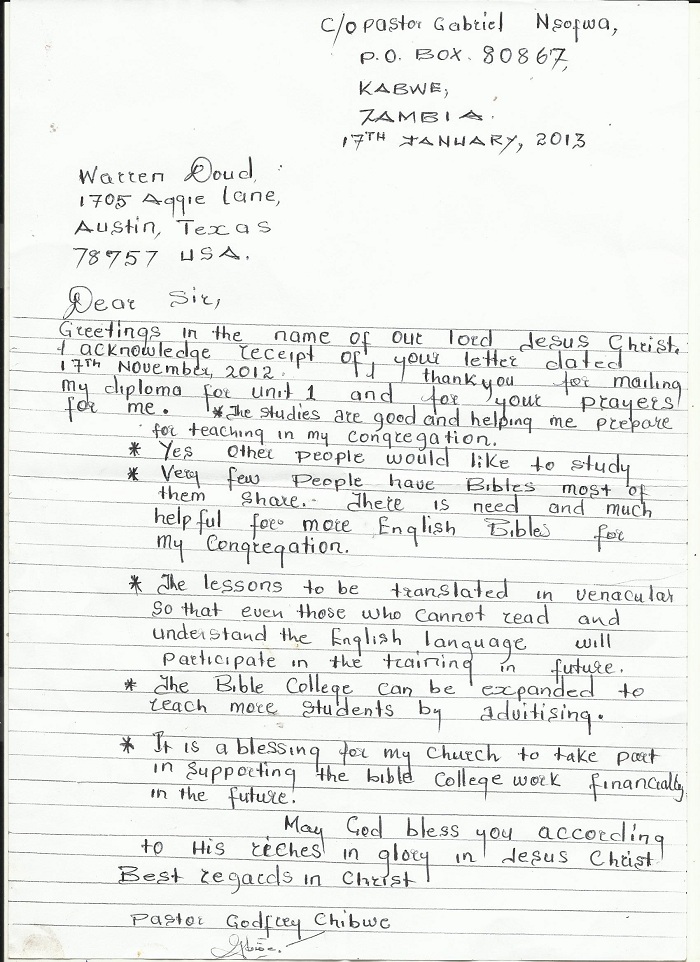 C/o Pastor Gabriel Nsofwa,
P.O. BOX. 80867,
KABWE,
ZAMBIA.
17TH JANUARY, 2013
Warren Doud,
1705 Aggie Lane,
Austin, Texas
78757 USA.
Dear Sir,
Greetings in the name of our lord Jesus Christ.
I acknowledge receipt of your letter dated
17th November, 2012. I thank you for mailing
my diploma for unit 1 and for your prayers
for me. * The studies are good and helping me prepare
for teaching in my congregation.
* Yes other people would like to study
* Very few people have Bibles most of
them share. There is need and much
helpful for more English Bibles for
my Congregation.
* The lessons to be translated in venacular
so that even those who cannot read and
understand the English language will
participate in the training in future.
* The Bible College can be expanded to
reach more students by advitising.
* It is a blessing for my church to take part
in supporting the bible College work financially
in the future.
May God bless you according
to His riches in glory in Jesus Christ
Best regards in Christ
Pastor Godfrey Chibwe